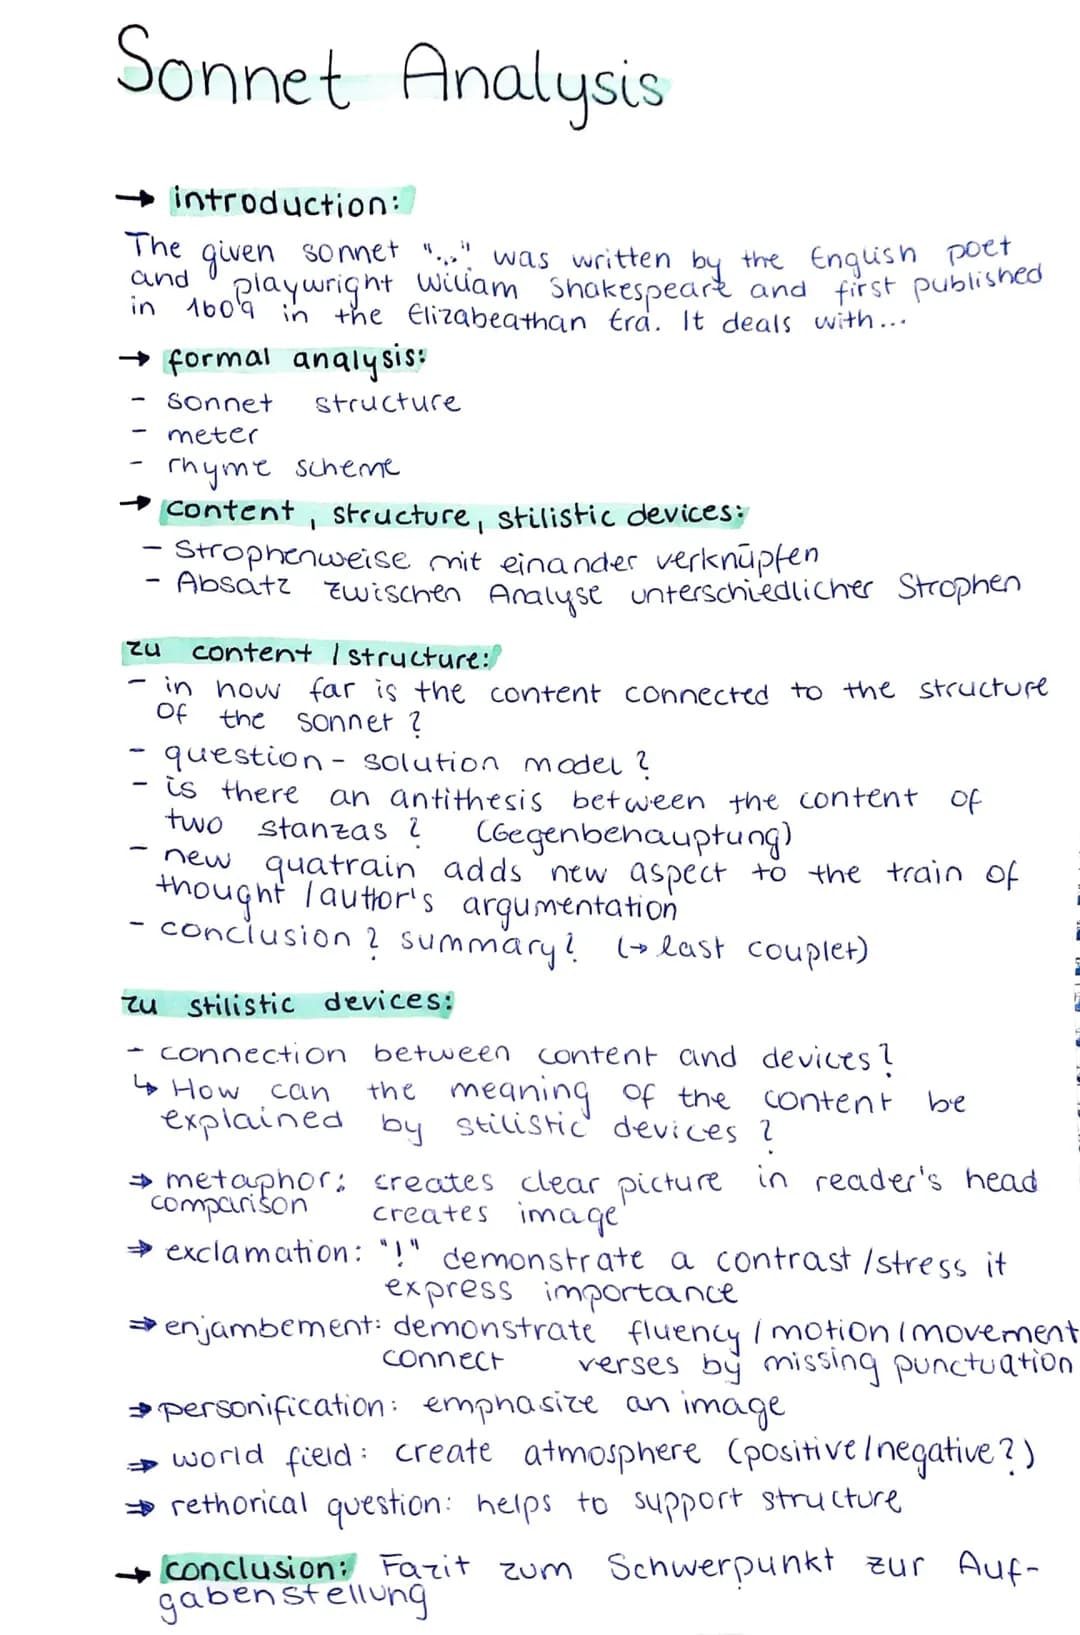 Sonnet Analysis
→ introduction:
The given sonnet "..." was written by the English poet
and playwright William Shakespeare and first published
in 1609 in the Elizabeathan Era. It deals with...
→ formal analysis:
- sonnet structure
- meter
- rhyme scheme
→ content, structure, stilistic devices:
- Strophenweise mit einander verknüpfen
- Absatz zwischen Analyse unterschiedlicher Strophen
zu content / structure:
- in how far is the content connected to the structure
of the sonnet?
- question - solution model?
- is there an antithesis between the content of
two stanzas? (Gegenbehauptung)
- new quatrain adds new aspect to the train of
thought / author's argumentation
- conclusion? summary? (→ last couplet)
zu stilistic devices:
- connection between content and devices?
↳ How can the meaning of the content be
explained by stilistic devices?
⇒ metaphor: creates clear picture in reader's head
comparison creates image
⇒ exclamation: "!" demonstrate a contrast / stress it
express importance
⇒ enjambement: demonstrate fluency / motion / movement
connect verses by missing punctuation
⇒ personification: emphasize an image
⇒ world field: create atmosphere (positive/negative?)
⇒ rethorical question: helps to support structure
→ conclusion: Fazit zum Schwerpunkt zur Auf-
gabenstellung